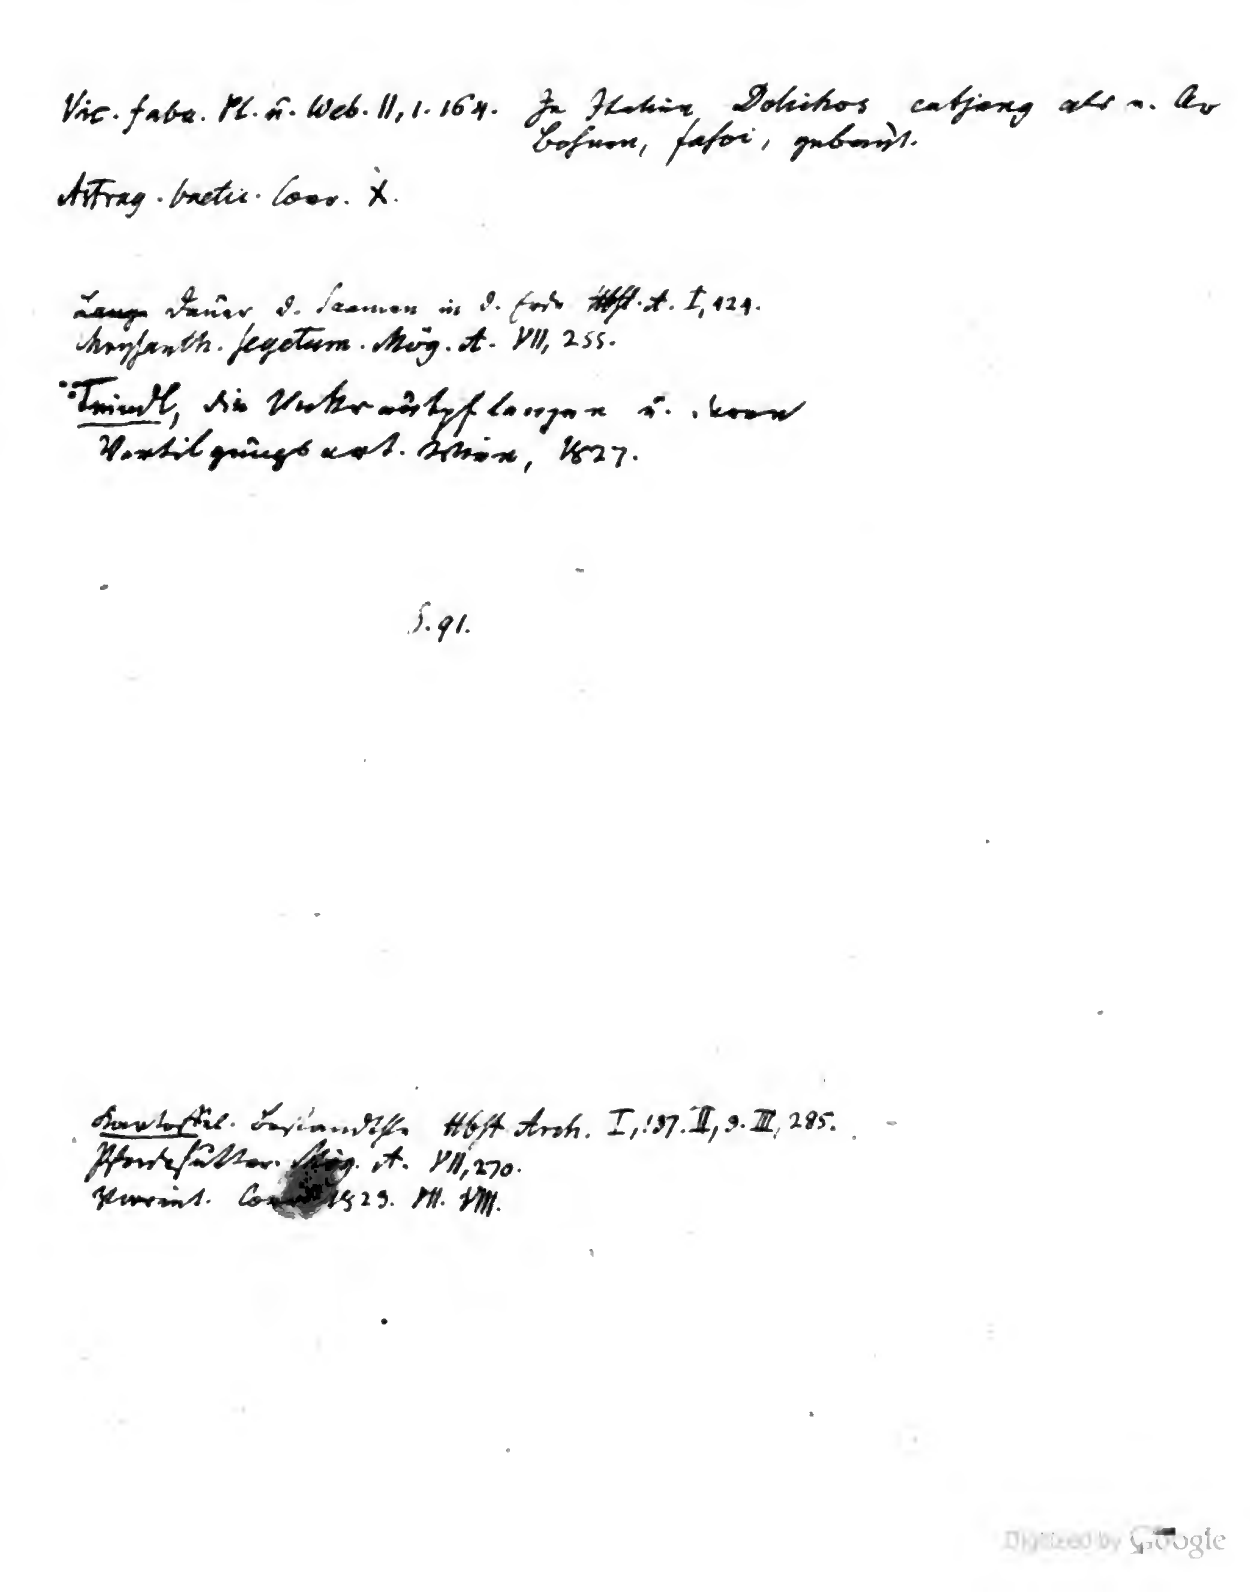 Vic. faba. Pl. u. Web. II, 1. 164. In Italien Dolichos catjang als
Bohnen, fasoi, gebaut.
Astrag. baetic. X.
Lange Dauer d. Saamen in d. Erde Hbst. A. I, 424.
Chrysanth. segetum. Mög. A. VII, 255.
Trindl, die Unkrautpflanzen u. deren
Vertilgungsart. Wien, 1827.
S. 91.
Kartoffel. Bestandthle Hbst Arch. I, 137. II, 3. III, 285.
Pferdefutter. Mög. A. VII, 270.
1829. VII. VIII.
Digitized by Google